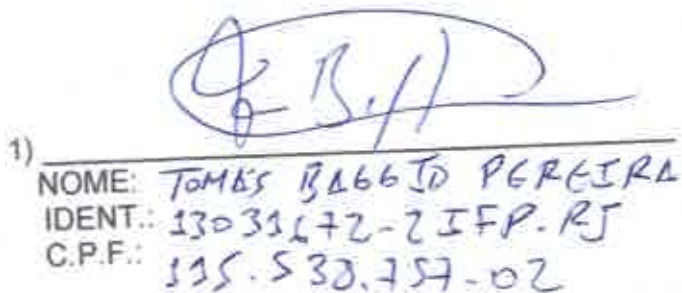 1)
NOME: TOMÁS BAGGIO PEREIRA
IDENT.: 13031672-2 IFP-RJ
C.P.F.: 115.538.757-02